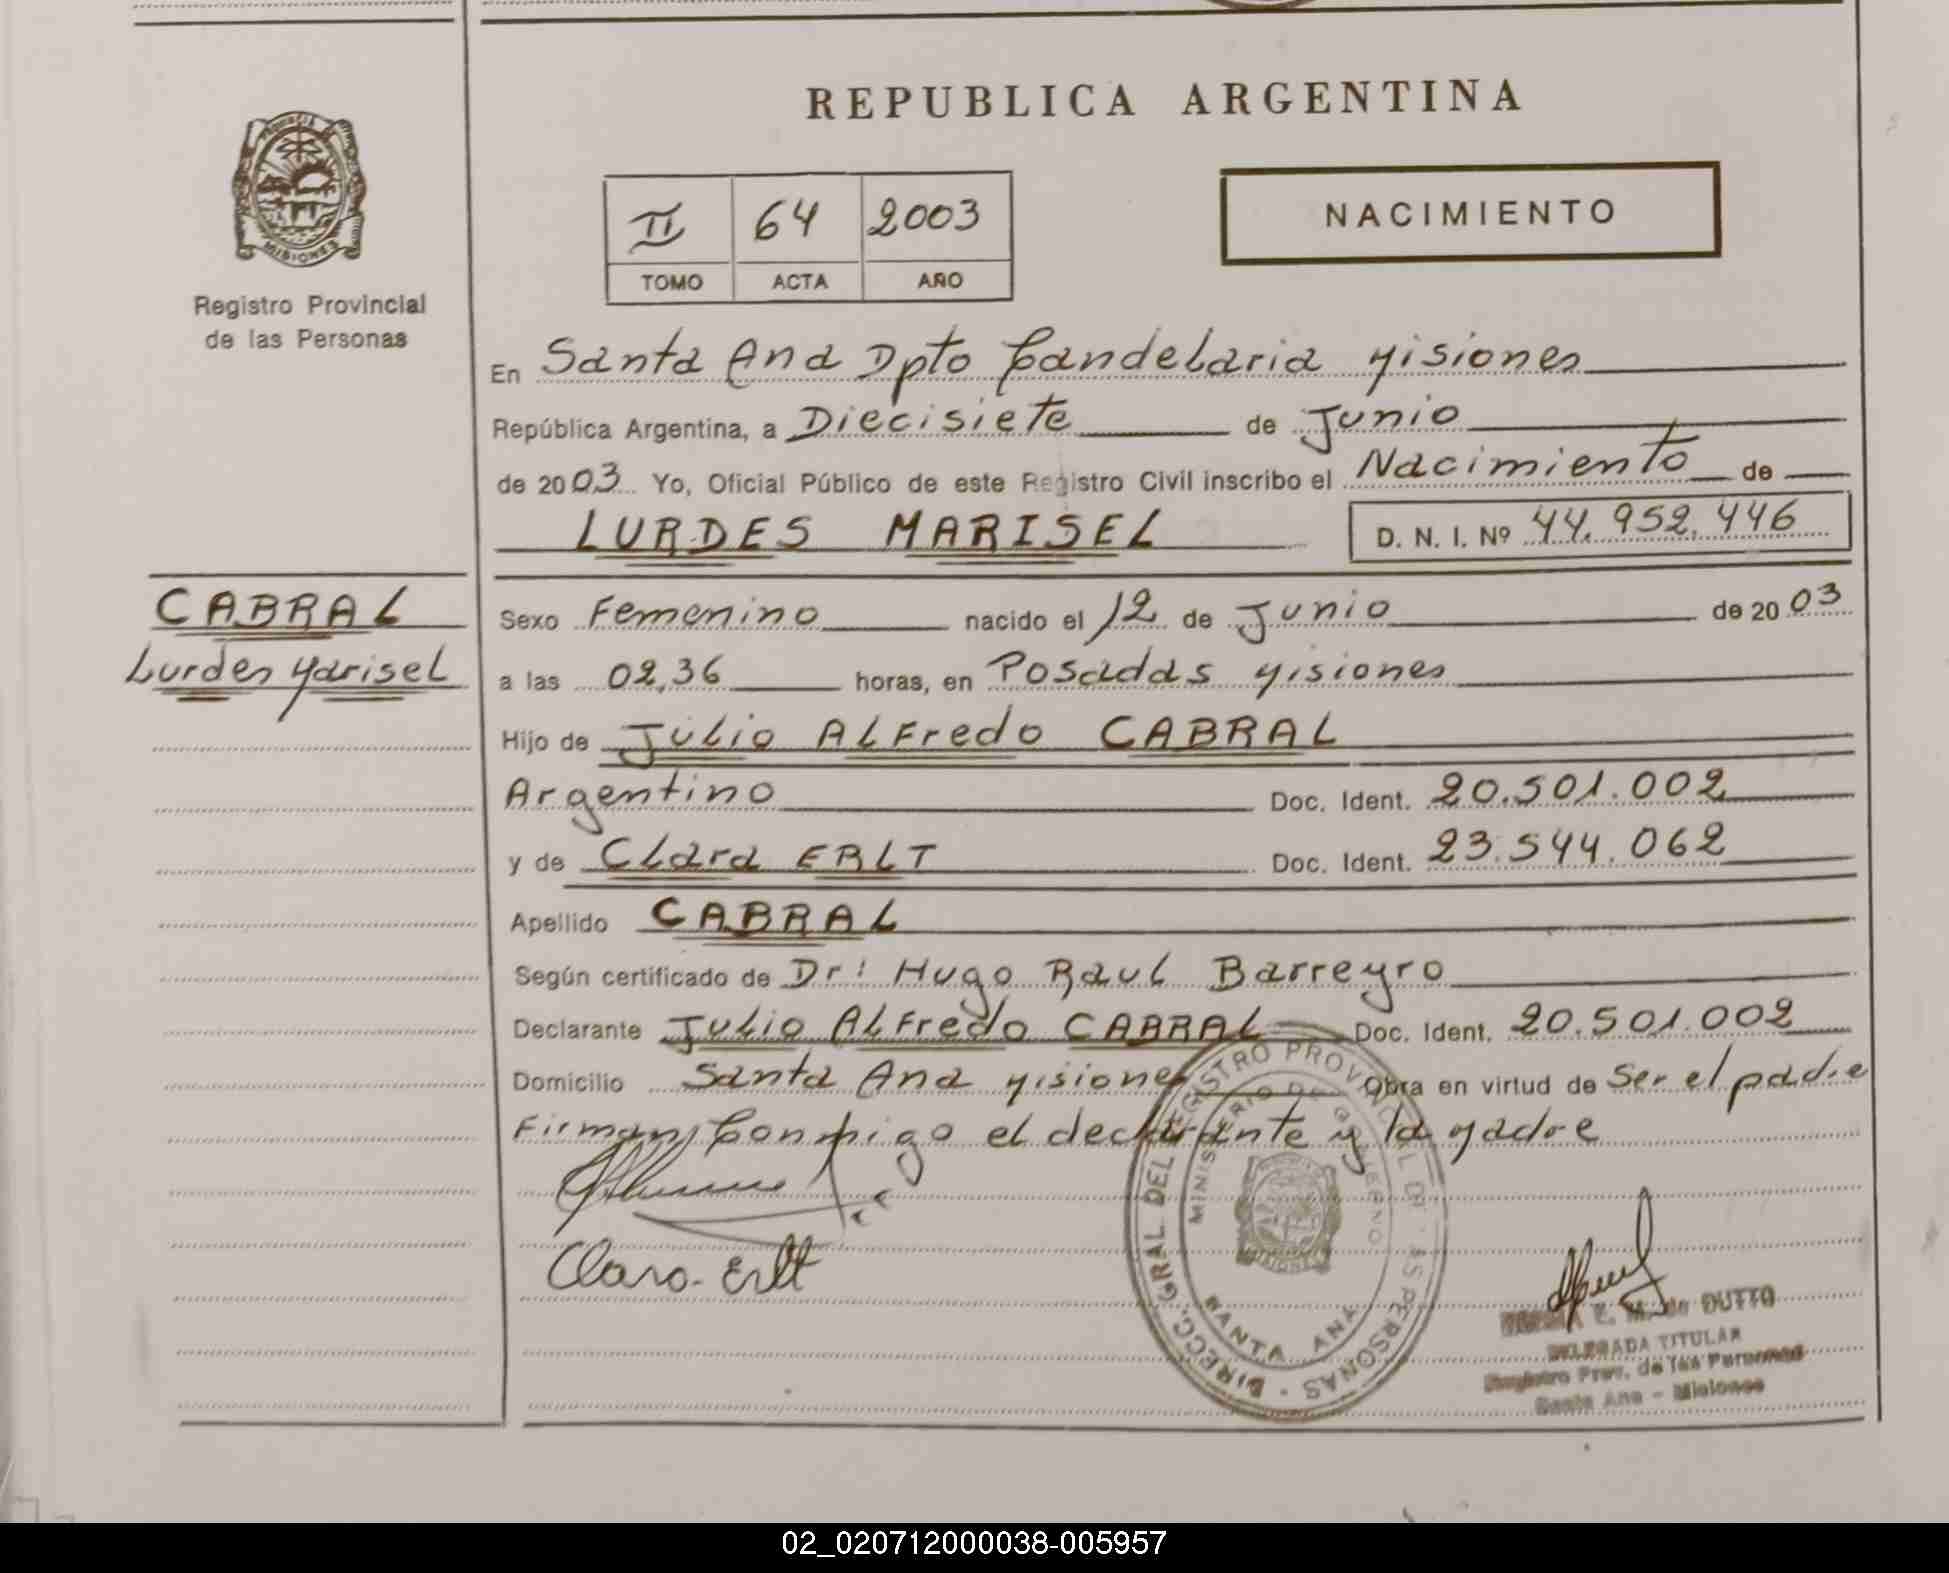 REPUBLICA ARGENTINA
PROVINCIA DE MISIONES
Registro Provincial
de las Personas
II 64 2003
TOMO ACTA AÑO
NACIMIENTO
En Santa Ana Dpto Candelaria Misiones
República Argentina, a Diecisiete de Junio
de 2003 Yo, Oficial Público de este Registro Civil inscribo el Nacimiento de
LURDES MARISEL D. N. I. Nº 44.952.446
CABRAL
Lurdes Marisel
Sexo Femenino nacido el 12 de Junio de 2003
a las 02,36 horas, en Posadas Misiones
Hijo de Julio ALFredo CABRAL
Argentino Doc. Ident. 20.501.002
y de Clara ERLT Doc. Ident. 23.544.062
Apellido CABRAL
Según certificado de Dr: Hugo Raul Barreyro
Declarante Julio ALFredo CABRAL Doc. Ident. 20.501.002
Domicilio Santa Ana Misiones Obra en virtud de Ser el padre
Firman Conmigo el declarante y la Madre
Clara Erlt
DIRECC. GRAL DEL REGISTRO PROVINCIAL DE LAS PERSONAS
MINISTERIO DE GOBIERNO
MISIONES
SANTA ANA
E. M. de DUTTO
DELEGADA TITULAR
Registro Prov. de las Personas
Santa Ana - Misiones
02_020712000038-005957